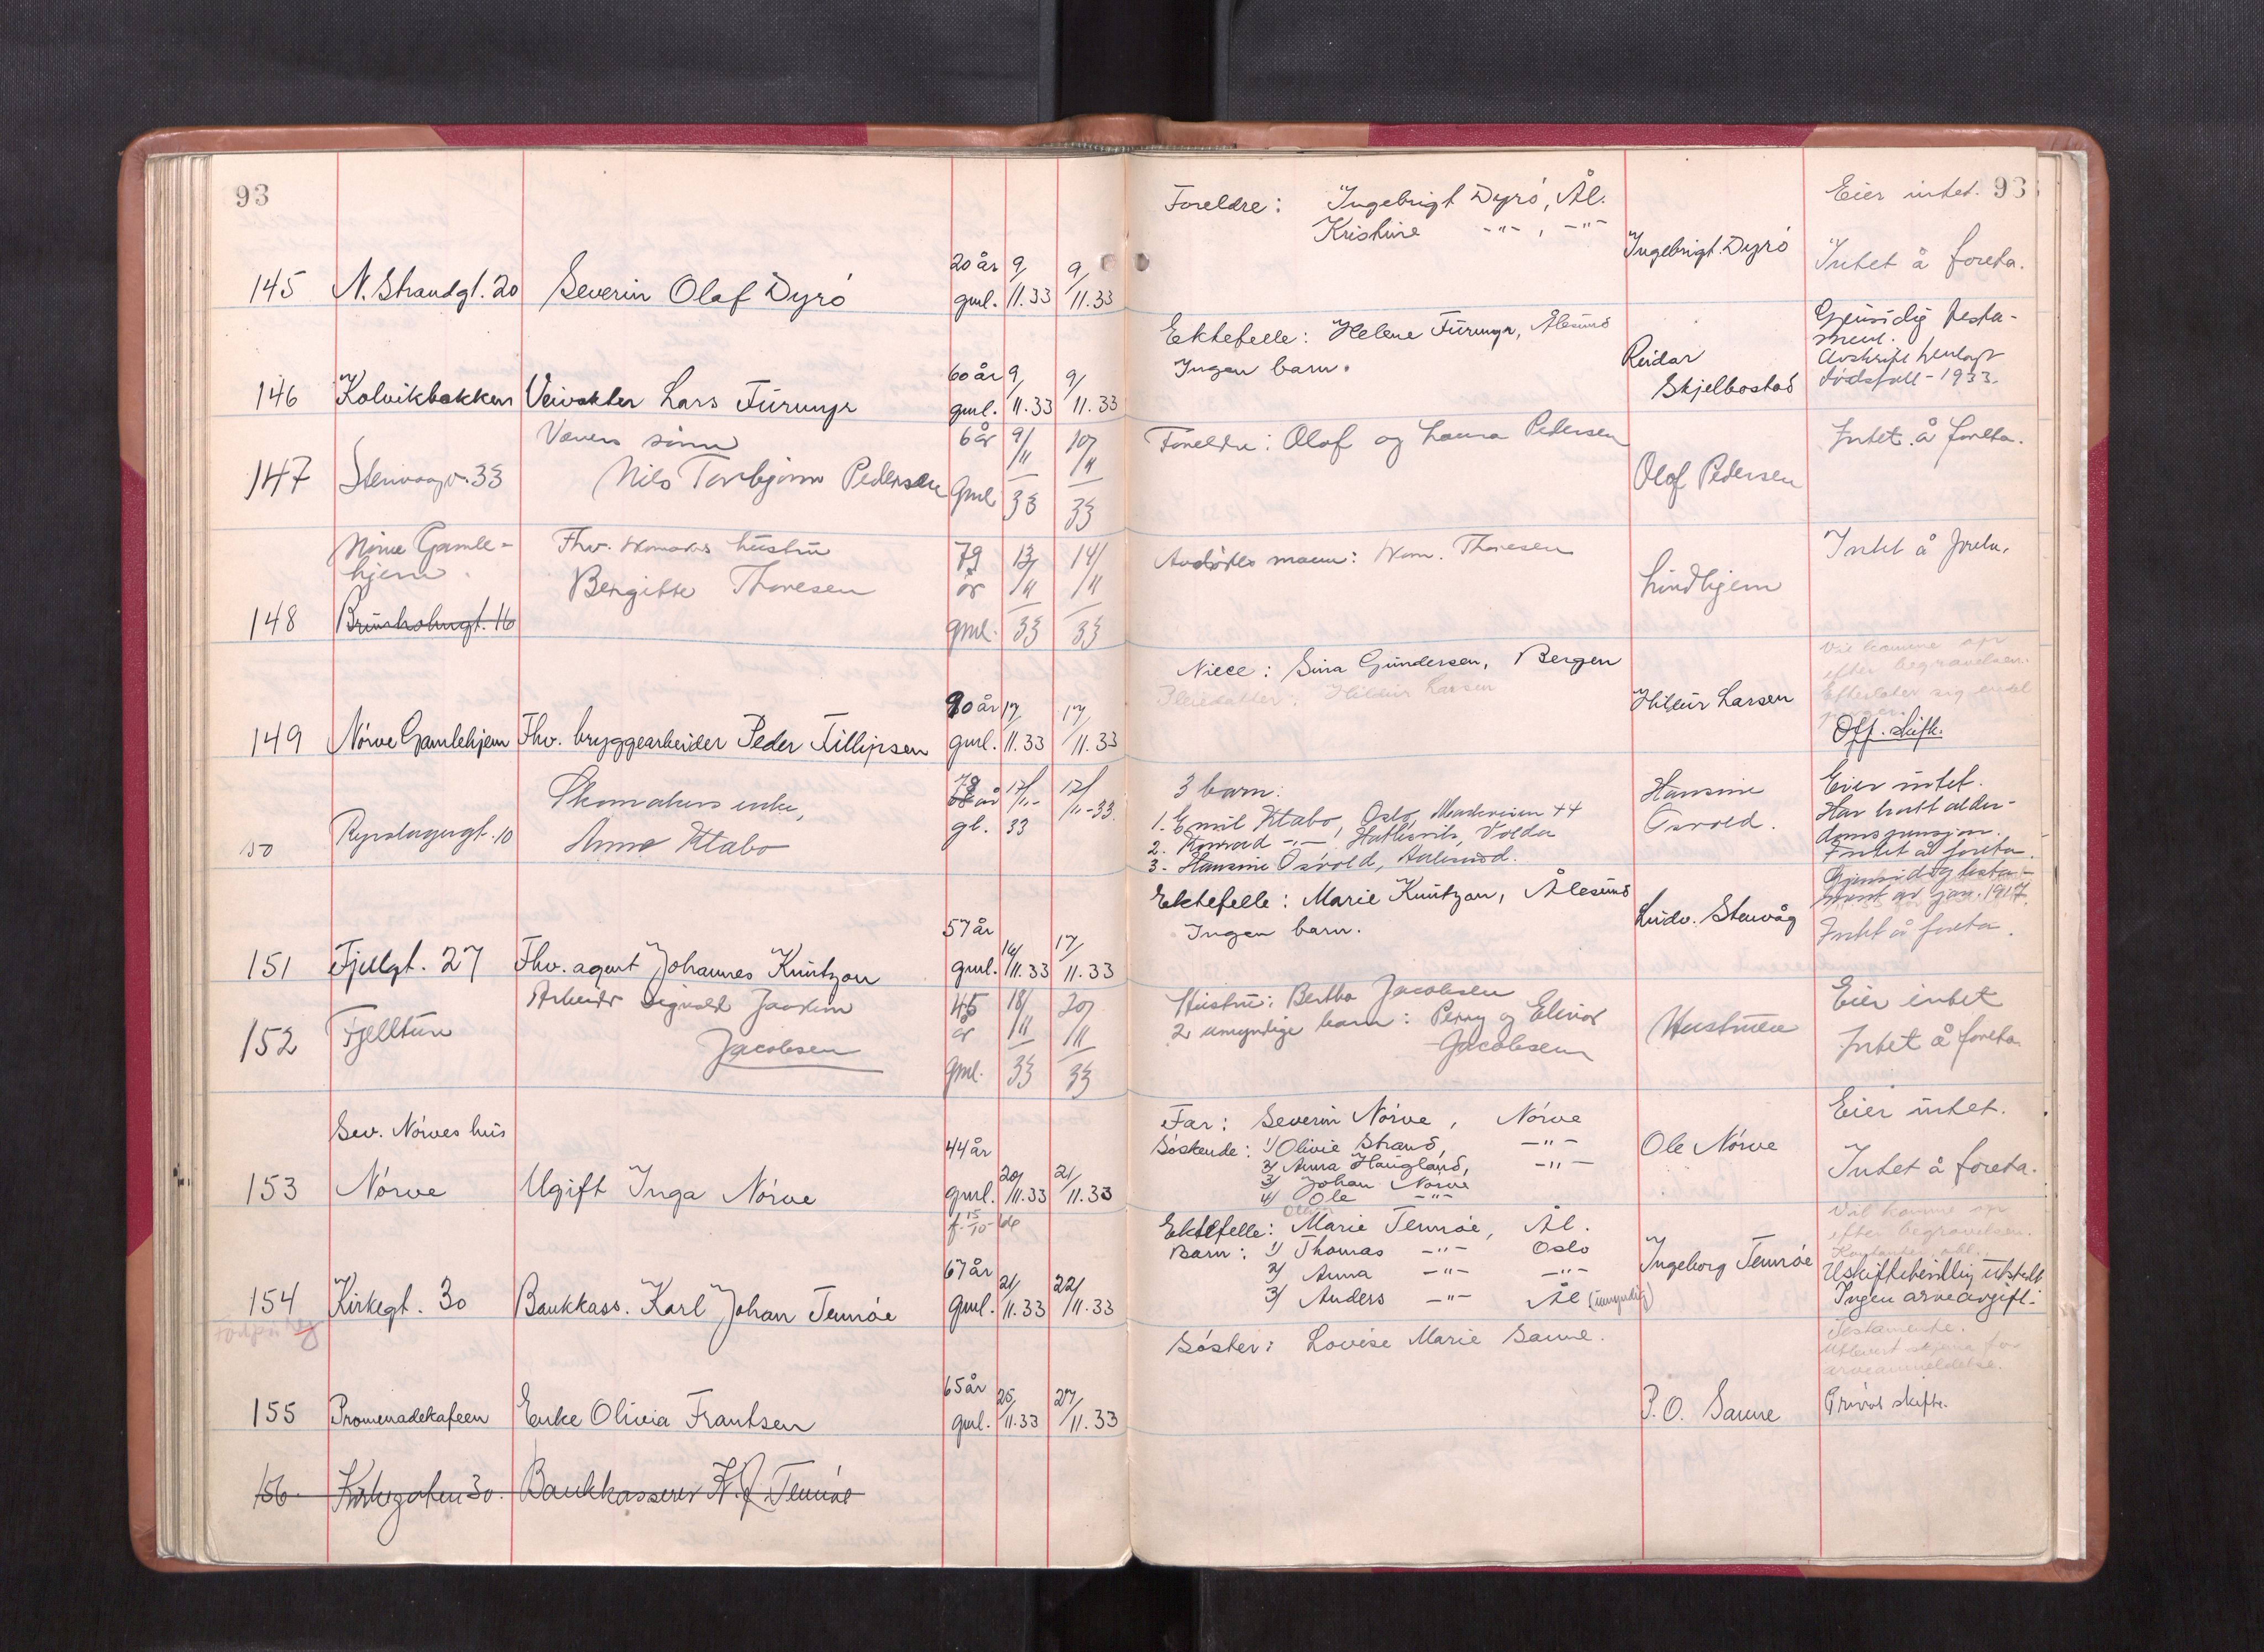 93
145 N. Strandgt. 20 Severin Olaf Dyrö 20 år gml. 9/11.33 9/11.33
146 Kolvikbakken Veivokter Lars Furmyr 60 år gml. 9/11.33 9/11.33
147 Stenvaagv. 33 Nils Torbjörn Pedersen 6 år gml 9/11 33 10/11 33
148 Nörve Gamle-
hjem.
Brunholmgt. 16
Fhv. skomakers hustru
Bergitte Thoresen 79 år gml. 13/11 33 14/11 33
149 Nörve Gamlehjem Fhv. bryggearbeider Peder Fillipsen 90 år gml. 17/11.33 17/11.33
50 Røyslagergt. 10 Skomakers enke,
Anna Ytabo 78 år gl. 17/11-33 17/11-33.
151 Fjellgt. 27 Fhv. agent Johannes Knutzon 57 år gml. 16/11.33 17/11.33
152 Fjelltun Arbeider Sigvald Joakim
Jacobsen 45 år gml. 18/11 33 20/11 33
Sev. Nörves hus
153 Nörve Ugift Inga Nörve 44 år gml. 20/11.33 21/11.33
f. 15/10-66
154 Kirkegt. 30 Bankkass. Karl Johan Tennöe 67 år gml. 21/11.33 22/11.33
155 Promenadekafeen Enke Olivia Frantsen 65 år gml. 25/11.33 27/11.33
156. Kirkegaten 30. Bankkasserer K. J. Tennöe
93
Foreldre: Ingebrigt Dyrö, Ål.
Kristine -"- , -"-
Ingebrigt Dyrö
Eier intet.
Intet å foreta.
Ektefelle: Helene Furmyr, Ålesund
Ingen barn.
Reidar
Skjelbostad
Gjensidig testa-
ment.
Avskrift henlagt
dödsfall - 1933.
Foreldre: Olof og Laura Pedersen
Olof Pedersen
Intet å foreta.
Avdödes mann: Thoresen
Lindhjem
Intet å foreta.
Niece: Sina Gundersen, Bergen
Pleiedatter: Hildur Larsen
Hildur Larsen
Vil komme op
efter begravelsen.
Efterlater sig endel
penger.
Off. skifte.
3 barn:
1. Emil Ytabo, Oslo,
2. Konrad -"- , Volda
3. Hansine Osvold, Aalesund.
Hansine
Osvold.
Eier intet.
Har hatt alder-
domspensjon.
Intet å foreta.
Ektefelle: Marie Knutzon, Ålesund
Ingen barn.
Ludv. Stenvåg
Gjensidig testa-
ment av jan. 1917.
Intet å foreta.
Hustru: Bertha Jacobsen
2 umyndige barn: Perry og Elinor
Jacobsen
Hustruen
Eier intet
Intet å foreta.
Far: Severin Nörve, Nörve
Söskende: 1/ Olivie Strand, -"-
2/ Anna Haugland, -"-
3/ Johan Nörve
4/ Ole -"-
Ole Nörve
Eier intet.
Intet å foreta.
Ektefelle: Marie Tennöe, Ål.
Barn: 1/ Thomas -"- Oslo
2/ Anna -"- -"-
3/ Anders -"- Ål (umyndig)
Ingeborg Tennöe
Vil komme op
efter begravelsen.
Uskiftebevilling utstedt
Ingen arveavgift.
Söster: Lovise Marie Sanne.
P.O. Sanne
Testamente.
Utlevert skjema for
arveanmeldelse.
Privat skifte.